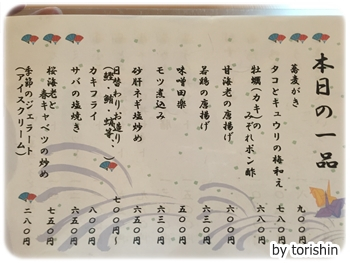 本日の一品
蕎麦がき 九〇〇円
タコとキュウリの梅和え 六八〇円
牡蠣(カキ)の
みぞれポン酢 七八〇円
甘海老の唐揚げ 六〇〇円
若鶏の唐揚げ 六三〇円
味噌田楽 五〇〇円
モツ煮込み 六三〇円
砂肝ネギ塩炒め 六五〇円
日替わりお造り 七〇〇円〜
カキフライ 八〇〇円
サバの塩焼き 六五〇円
桜海老と
春キャベツの炒め 七五〇円
季節のジェラート
(アイスクリーム) 二八〇円
by torishin